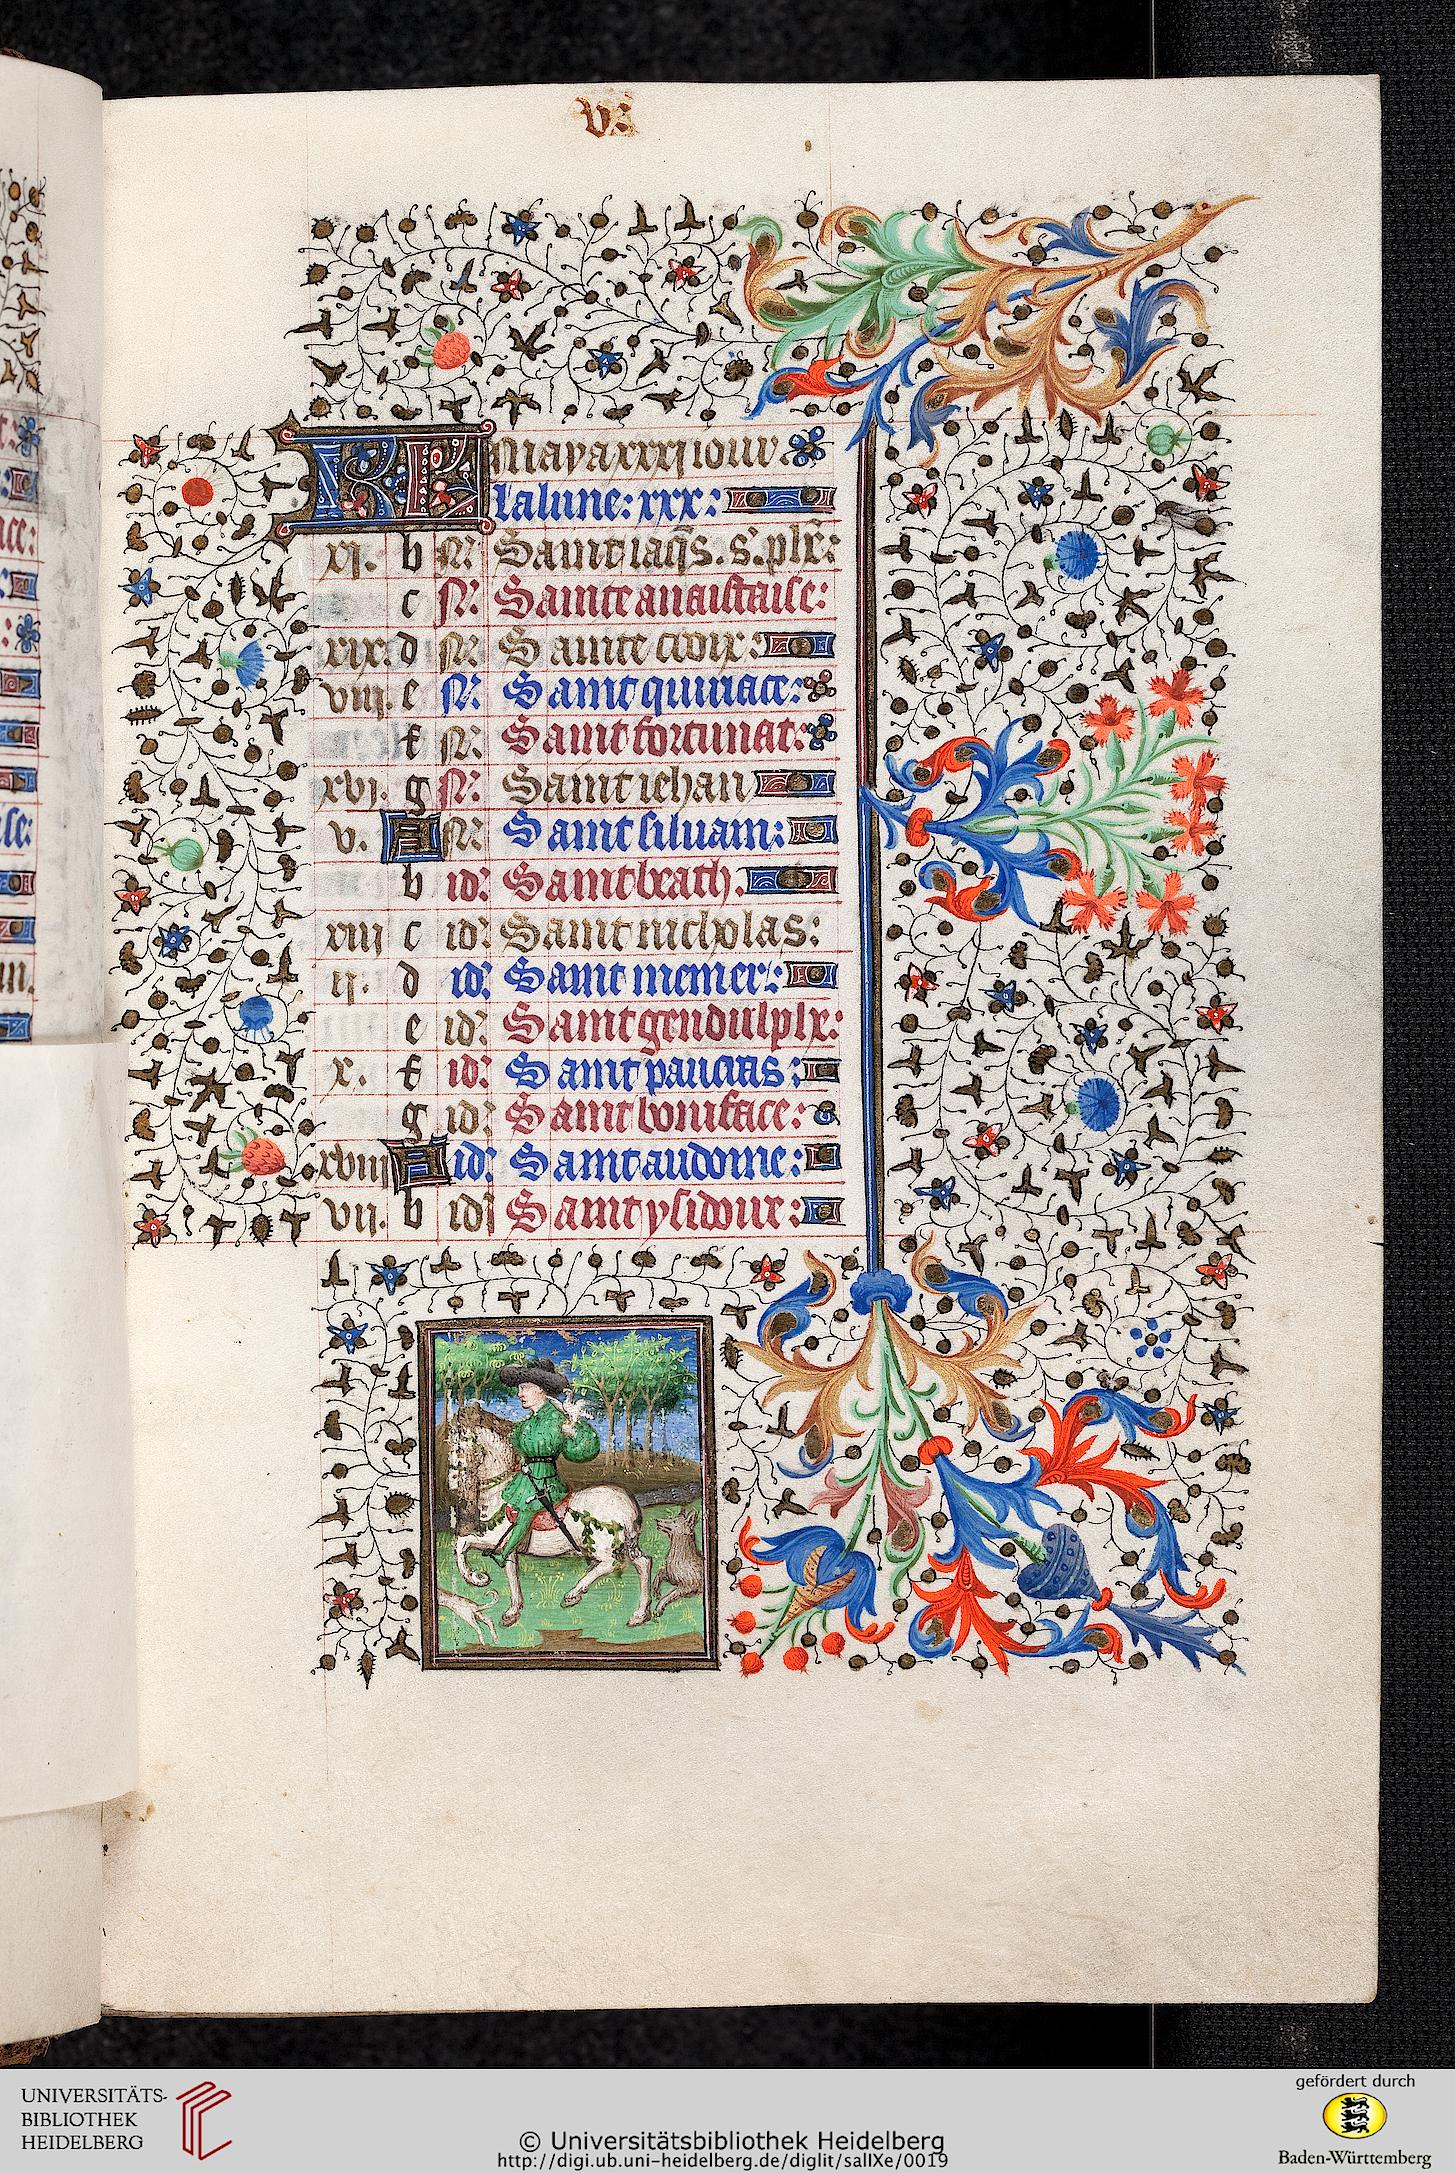 v:
KL may a xxxj iour.
La lune: xxx:
xj. b N: Saint iaq̃s. s. phẽ:
c N: Sainte anaistaise:
xix. d N: Sainte croix:
viij. e N: Saint quiriace:
f N: Saint fortunat:
xvj. g N: Saint iehan
v. A N: Saint siluain:
b id: Saint beath.
xiij c id: Saint nicholas:
ij. d id: Saint memer:
e id: Saint gendulphe:
x. f id: Saint pancras:
g id: Saint boniface:
xviij A id: Saint audoine:
vij. b id Saint ysidoire:
UNIVERSITÄTS-
BIBLIOTHEK
HEIDELBERG
© Universitätsbibliothek Heidelberg
http://digi.ub.uni-heidelberg.de/diglit/salIXe/0019
gefördert durch
Baden-Württemberg